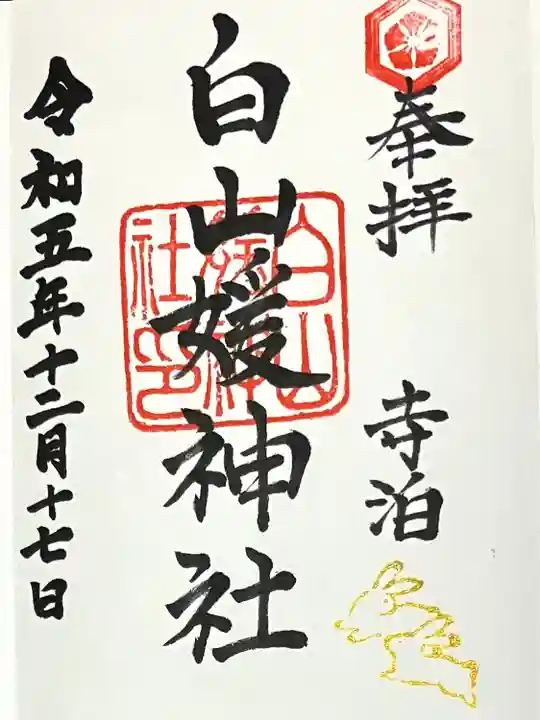 奉拝 寺泊
白山媛神社
白山媛神社印
令和五年十二月十七日